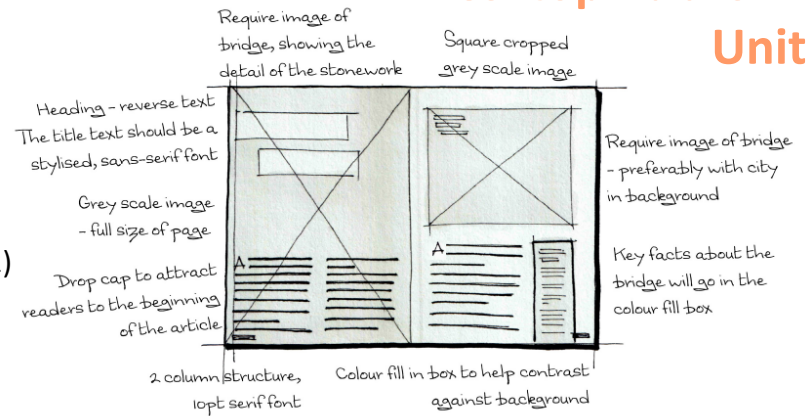 Unit
Require image of
bridge, showing the
detail of the stonework
Square cropped
grey scale image
Heading - reverse text
The title text should be a
stylised, sans-serif font
Grey scale image
- full size of page
)
Drop cap to attract
readers to the beginning
of the article
A
A
Require image of bridge
- preferably with city
in background
Key facts about the
bridge will go in the
colour fill box
2 column structure,
10pt serif font
Colour fill in box to help contrast
against background